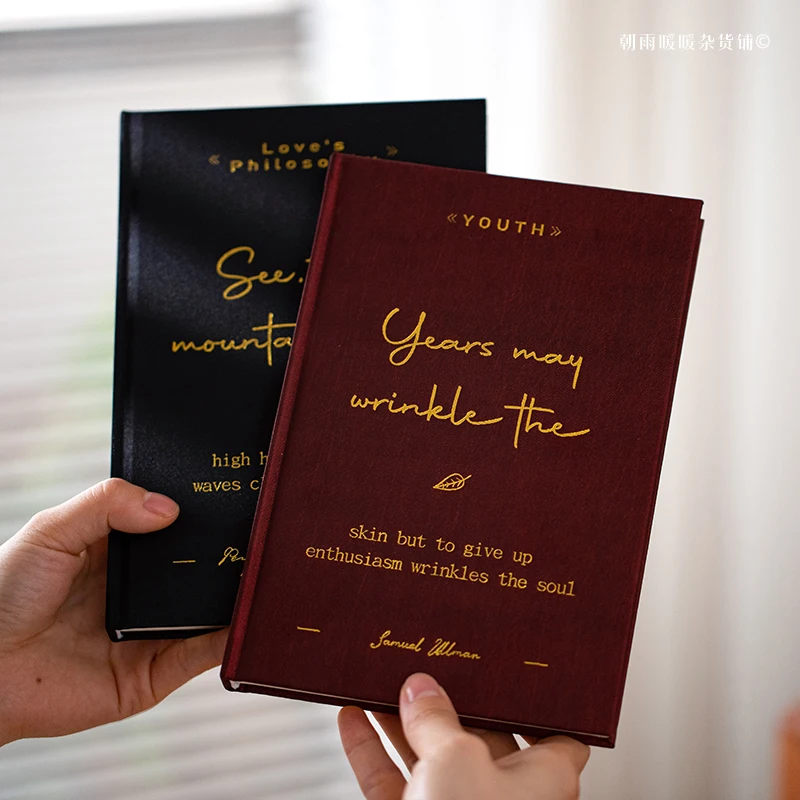 朝雨暖暖杂货铺©
« Love's »
See
high
waves
«YOUTH»
Years may
wrinkle the
skin but to give up
enthusiasm wrinkles the soul
Samuel Ullman